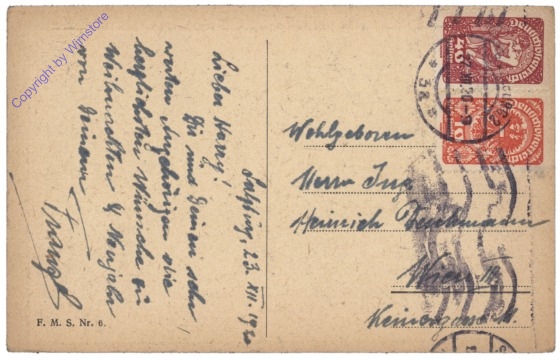 Salzburg, 23. XII. 1920
Lieber Harry!
Dir und Deinen sehr
werten Angehörigen die
herzlichsten Wünsche zu
Weihnachten & Neujahr
von Deinem
Franz
F. M. S. Nr. 6.
Wohlgeboren
Herrn Ing.
Heinrich
Wien
Deutschösterreich
40
Deutschösterreich
10
Copyright by Wimstore